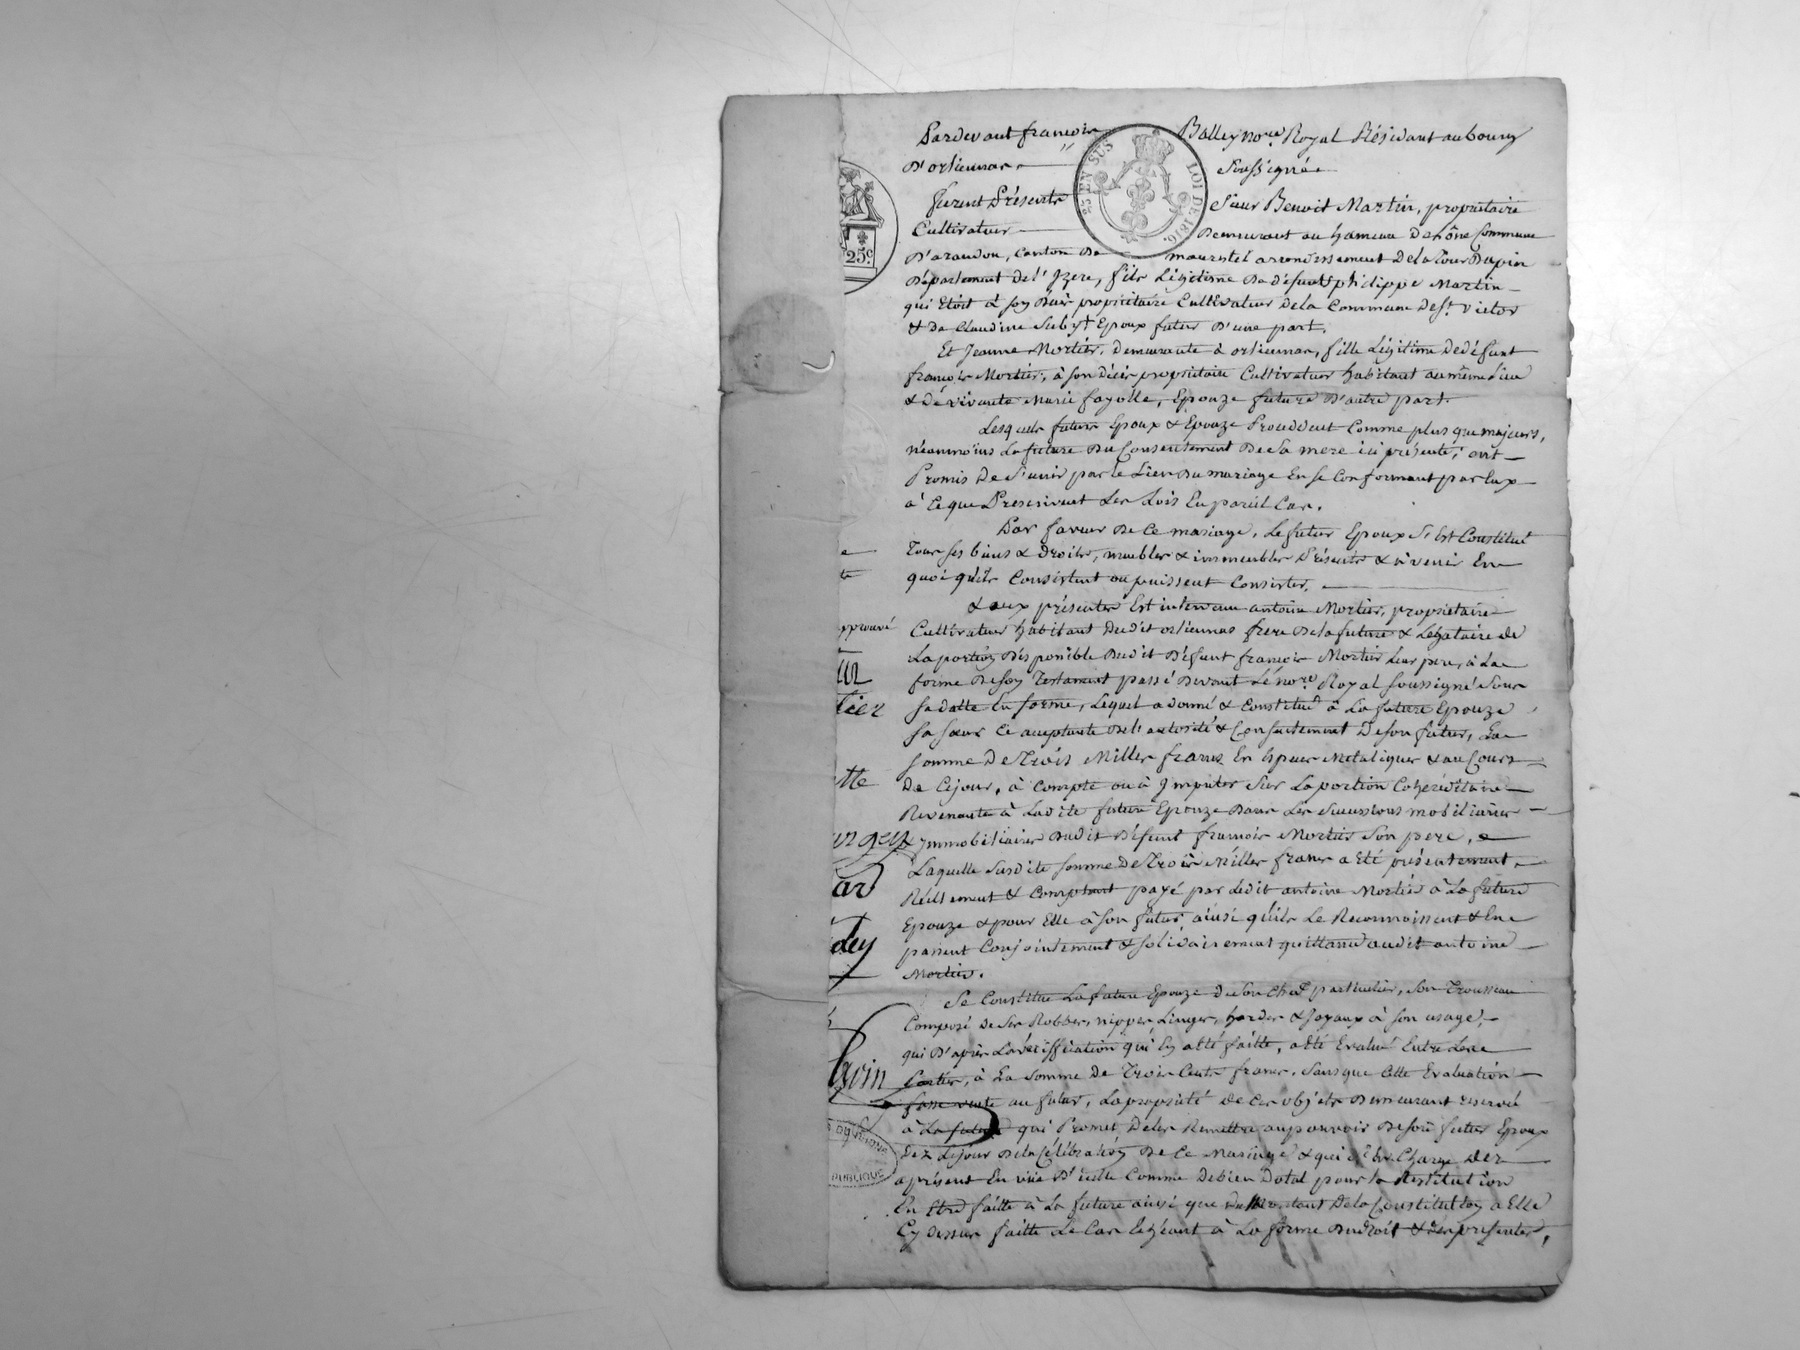 Pardevant françois Balley no.re Royal Résidant au bourg
D'orlienas soussigné
furent Présents Sieur Benoit Martin, propriétaire
Cultivateur Demeurant au hameau De Commune
D'arandon, Canton De morestel arrondissement De la Tour Dupin
Département De l'Izere, fils Légitime De défunt philippe Martin
qui Etoit à son Décès propriétaire Cultivateur De la Commune De St. Victor
& De Claudine Epoux futur D'une part.
Et Jeanne Mortier, Demeurante à orlienas, fille Légitime De défunt
françois Mortier, à son Décès propriétaire Cultivateur habitant au même Lieu
& De vivante Marie fayolle, Epouze future D'autre part.
Lesquels futurs Epoux & Epouze Procèddent Comme plus que majeurs,
néanmoins La future Du Consentement De Sa mere ici présente, ont
Promis De S'unir par le Lien Du mariage En se Conformant par Eux
à Ce que Prescrivent Les Lois En pareil Cas.
Par faveur De Ce mariage, Le futur Epoux S'Est Constitué
Tous ses biens & Droits, meubles & immeubles Présents & à venir En
quoi qu'ils Consistent ou puissent Consister.
& aux présentes Est intervenu antoine Mortier, propriétaire
Cultivateur habitant Dudit orlienas frere De la future & Légataire de
La portion Disponible Dudit Défunt françois Mortier Leur pere, à La
forme De son Testament passé Devant Le no.re Royal soussigné Sous
sa Datte En forme, Lequel a donné & Constitué à La future Epouze
sa sœur Ci acceptante De l'autorité & Consentement De son futur, La
somme De Trois Milles francs En Espèces Metaliques & au Cours
De Ce jour, à Compte ou à Imputer Sur La portion Cohéréditaire
Revenante à Ladite future Epouze Dans Les Successions mobiliaires
& Immobiliaires Dudit Défunt françois Mortier Son pere,
Laquelle Susdite somme De Trois Milles francs a Eté présentement,
Réellement & Comptant payé par Ledit antoine Mortier à La future
Epouze & pour Elle à son futur, ainsi qu'ils Le Reconnoissent & En
passent Conjointement & solidairement quittance audit antoine
Mortier.
Se Constitue La future Epouze De Son Chef particulier, Son Trousseau
Composé De Ses Robbes, nippes, Linges, hardes & Joyaux à Son usage,
qui D'après La vériffication qui En a Eté faitte, a Eté Evalué Entre Les
Parties, à La Somme De Trois Cents francs, Sans que Cette Evaluation
fasse vente au futur, La propriété de Ces objets Demeurant reservée
à La future qui Promet De les Remettre au pouvoir De son futur Epoux
Dez Le jour De la Célébration De Ce Mariage & qui S'En Charge Dez
à présent En vüe D'icelle Comme De bien Dotal pour la Restitution
En Etre faitte à La future ainsi que Du Montant De la Constitution a Elle
Cy Dessus faitte Le Cas Echéant à La forme Du droit & des présentes,
25 EN SUS
LOI DE 1816.
25c.
pprouvé
tier
tte
ar
ley
PUBLIQUE